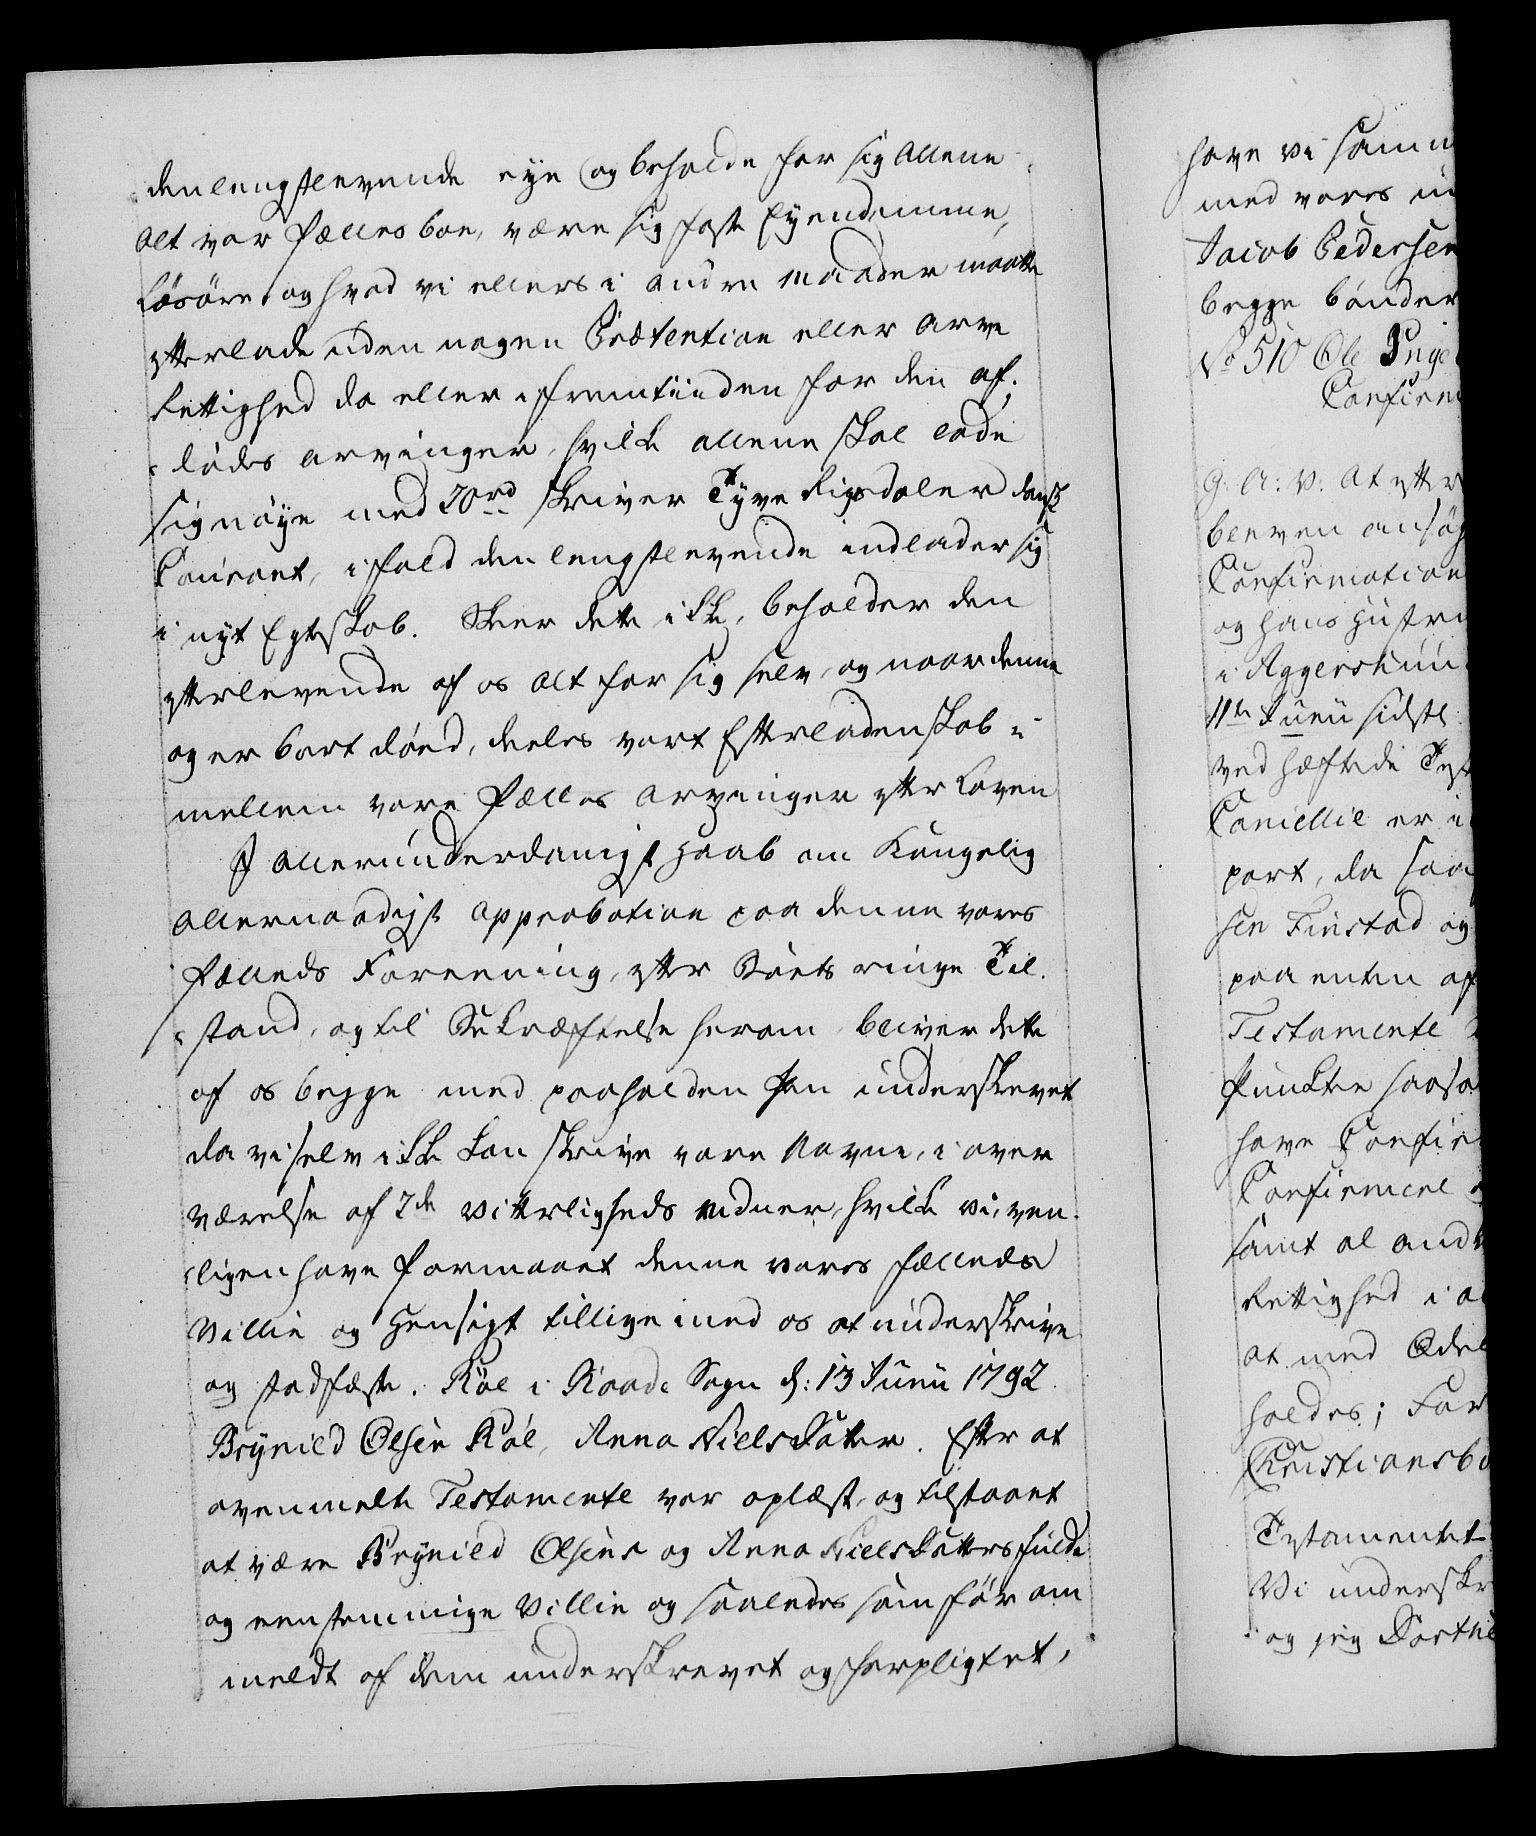 den lengstlevende eye og beholde for sig allene
alt vor Fælles boe, være sig fast Eyendomme,
Løsøre og hvad vi ellers i andre maader maatte
efterlade uden nogen Prætention eller Arve
Rettighed da eller i fremtiiden for den af¬
døds arvinger, hvilke allene skal lade
sig nøye med 20rd skriver Tyve Rigsdaler dansk
Courant, i fald den lengstlevende indlader sig
i nyt Egteskab. Skeer dette ikke, beholder den
efterlevende af os alt for sig selv, og naar denne
og er bort død, deeles vort Efterladenskab i¬
mellem vore Fælles Arvinger efter Loven
I allerunderdanigst haab om Kongelig
allernaadigst approbation paa denne vores
Fælleds Foreening, efter Boets ringe Til¬
stand, og til Bekræftelse herom bliver dette
af os begge med paaholden Pen underskrevet
da vi selv ikke kan skrive vore Navne, i over
værelse af 2de Vitterligheds vidner, hvilke vi ven¬
ligen have formaaet denne vores fælleds
Villie og Hensigt tillige med os at underskrive
og stadfæste. Röe i Raade Sogn d: 13 Junii 1792
Brynild Olsen Röe, Anna Nielsdatter. Efter at
ovenmelte Testamente var oplæst, og tilstaaet
at være Brynild Olsens og Anna Nielsdatters fulde
og eenstemmige Villie og saaledes som før om
meldt af dem underskrevet og forpligtet,
have vi samm
med vores
Jacob Pedersen
begge bönder
No 510 Ole Inge
Confirm
G. A: V. At efter
bleven ansøg
Confirmation
og hans Hustru
i Aggershuu
11te Junii sidstl
ved hæftede Test
Cancellie er i
port, da saa
sen Finstad og
paa enten af
Testamente
Puncter saasa
have Confir
Confirmere
samt al and
Rettighed i a
at med Odel
holdes; For
Christiansbo
Testamentet
Vi underskr
og jeg Dorthe